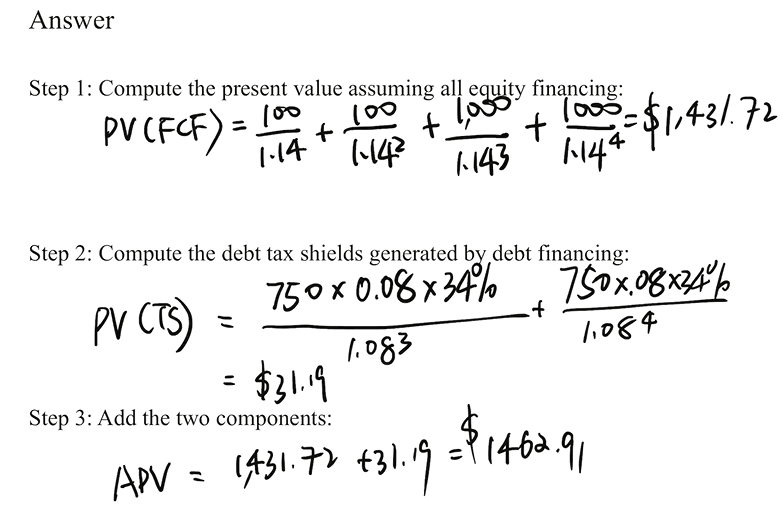 Answer
Step 1: Compute the present value assuming all equity financing:
PV(FCF) = 100/1.14 + 100/1.14² + 1,000/1.14³ + 1000/1.14⁴ = $1,431.72
Step 2: Compute the debt tax shields generated by debt financing:
PV (TS) = 750 x 0.08 x 34%/1.08³ + 750 x .08 x 34%/1.08⁴
= $31.19
Step 3: Add the two components:
APV = 1,431.72 + 31.19 = $1462.91